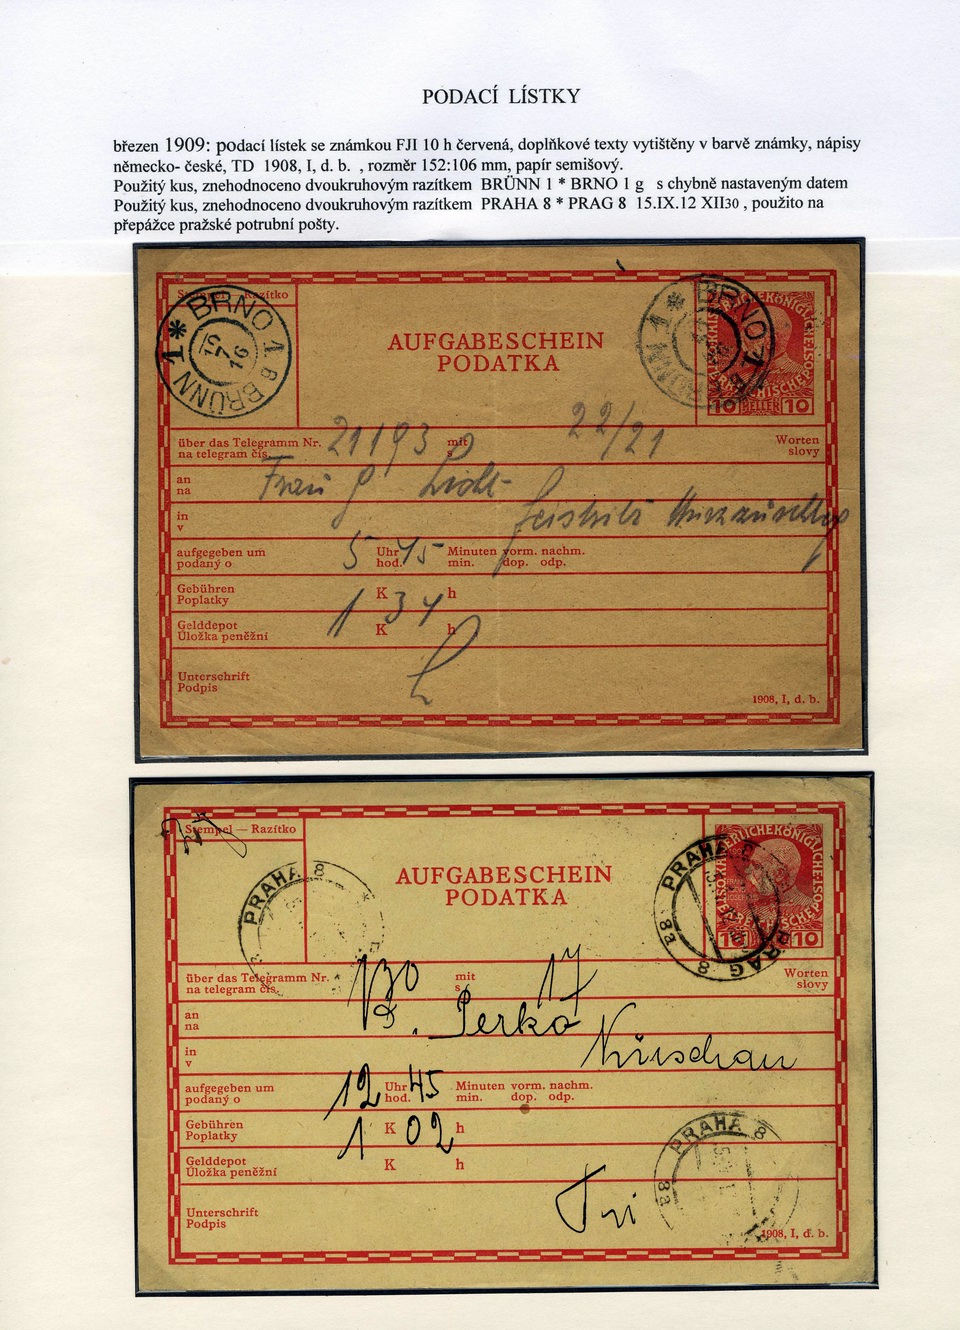 PODACÍ LÍSTKY
březen 1909: podací lístek se známkou FJI 10 h červená, doplňkové texty vytištěny v barvě známky, nápisy
německo- české, TD 1908, I, d. b. , rozměr 152:106 mm, papír semišový.
Použitý kus, znehodnoceno dvoukruhovým razítkem BRÜNN 1 * BRNO 1 g s chybně nastaveným datem
Použitý kus, znehodnoceno dvoukruhovým razítkem PRAHA 8 * PRAG 8 15.IX.12 XII30 , použito na
přepážce pražské potrubní pošty.
Stempel Razítko
BRNO 1 g BRÜNN 1 *
19
7
16
AUFGABESCHEIN
PODATKA
BRNO 1
10 HELLER 10
über das Telegramm Nr. 21193 mit 22/21 Worten
na telegram čís. s slovy
an
na Frau
in
v
aufgegeben um 5 Uhr 45 Minuten vorm. nachm.
podaný o hod. min. dop. odp.
Gebühren 1 K 34 h
Poplatky
Gelddepot K h
Úložka peněžní
Unterschrift
Podpis
1908, I, d. b.
Stempel — Razítko
PRAHA 8
AUFGABESCHEIN
PODATKA
PRAHA 8 PRAG 8
10 10
über das Telegramm Nr. 130 mit 17 Worten
na telegram čís. s slovy
an
na B. Perko
in
v Nürschau
aufgegeben um 12 Uhr 45 Minuten vorm. nachm.
podaný o hod. min. dop. odp.
Gebühren 1 K 02 h
Poplatky
Gelddepot K h
Úložka peněžní
PRAHA 8
Unterschrift
Podpis
1908, I, d. b.